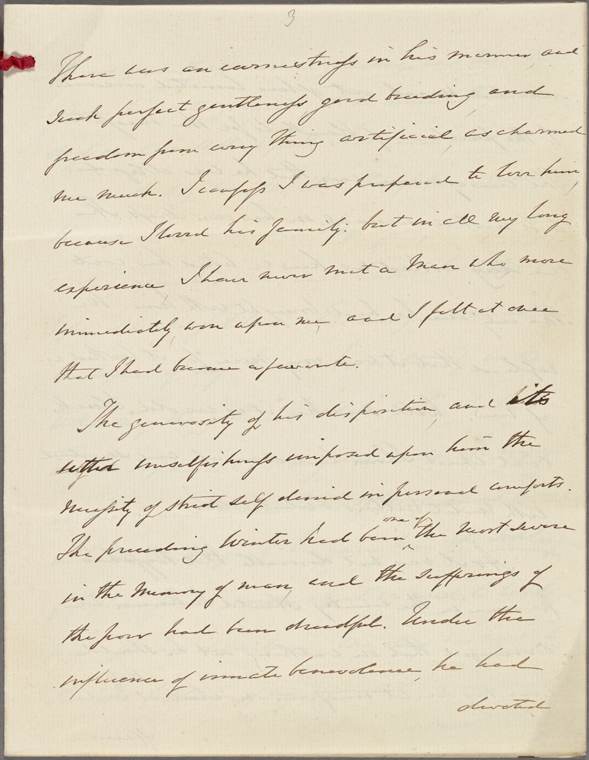 3
There was an earnestness in his manner and
such perfect gentleness good breeding and
freedom from every thing artificial, as charmed
me much. I confess I was prepared to love him,
because I loved his family: but in all my long
experience I have never met a man who more
immediately won upon me, and I felt at once
that I had become a favorite.
The generosity of his disposition, and its
utter unselfishness imposed upon him the
necessity of strict self denial in personal comforts.
The preceding Winter had been one of the most severe
in the memory of man and the sufferings of
the poor had been dreadful. Under the
influence of innate benevolence, he had
devoted